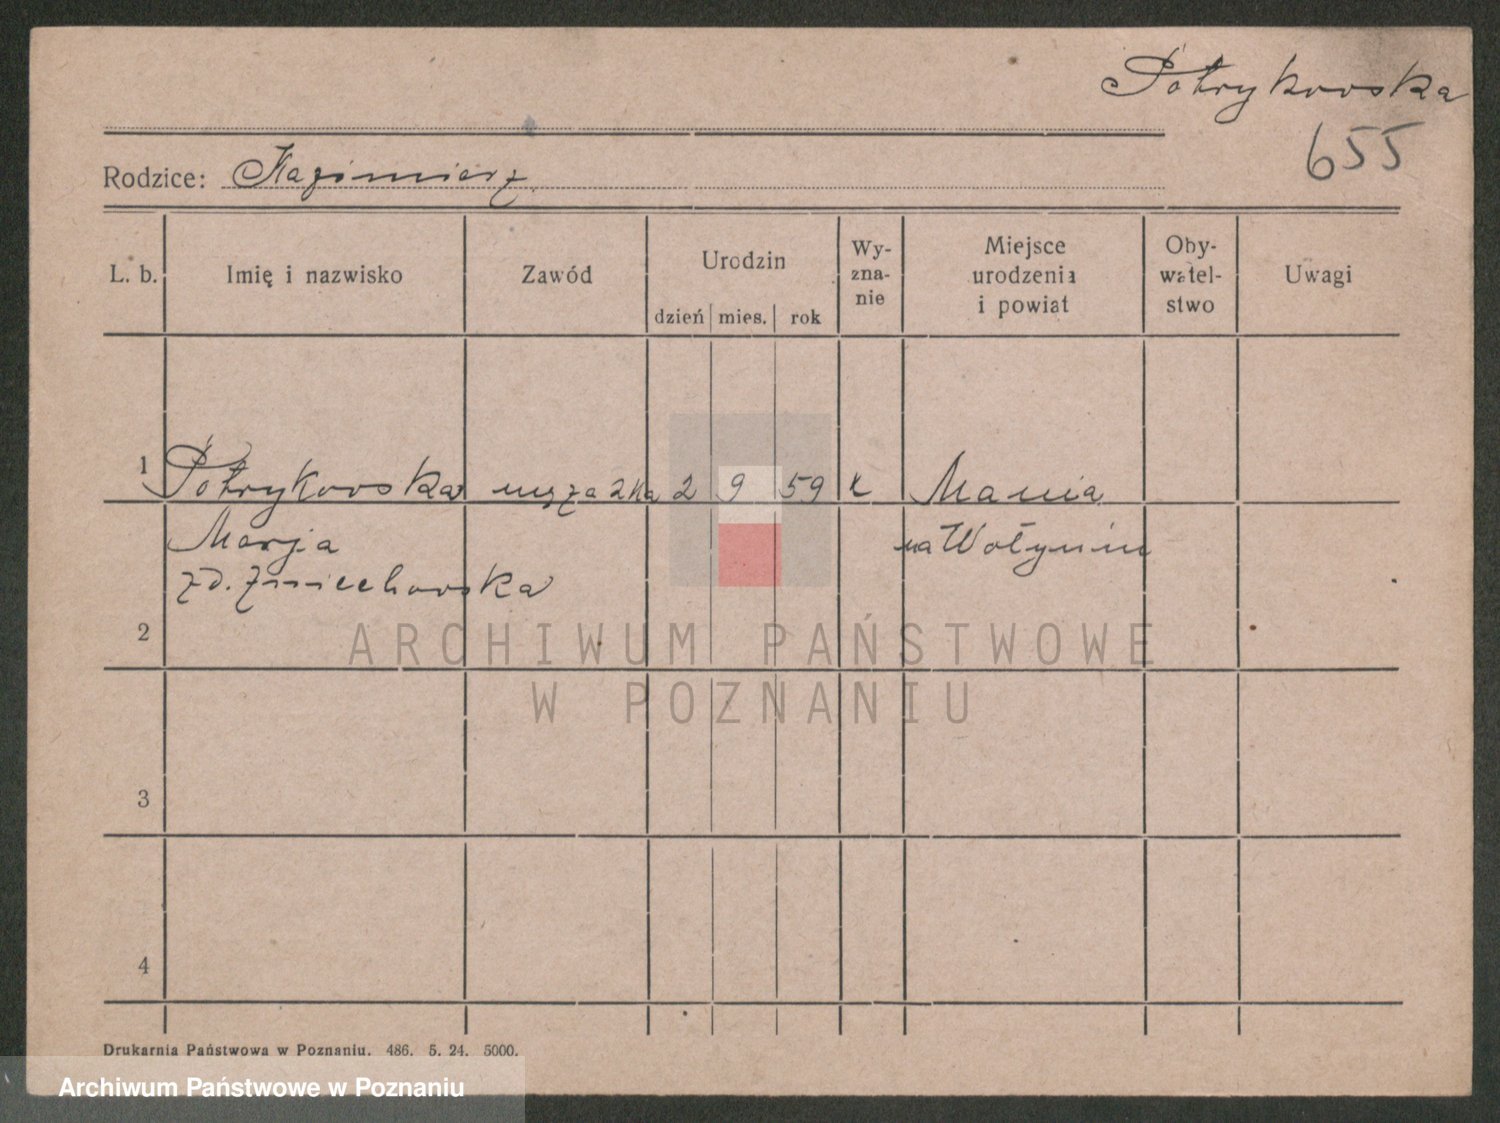 Potrykowska
655
Rodzice: Kazimierz
L. b. Imię i nazwisko Zawód Urodzin dzień mies. rok Wy-znanie Miejsce urodzenia i powiat Oby-watel-stwo Uwagi
1 Potrykowska mężatka 2 9 59 k Mania
Marja na Wołyniu
zd. Zmiechowska
2
3
4
Drukarnia Państwowa w Poznaniu. 486. 5. 24. 5000.
ARCHIWUM PAŃSTWOWE
W POZNANIU
Archiwum Państwowe w Poznaniu